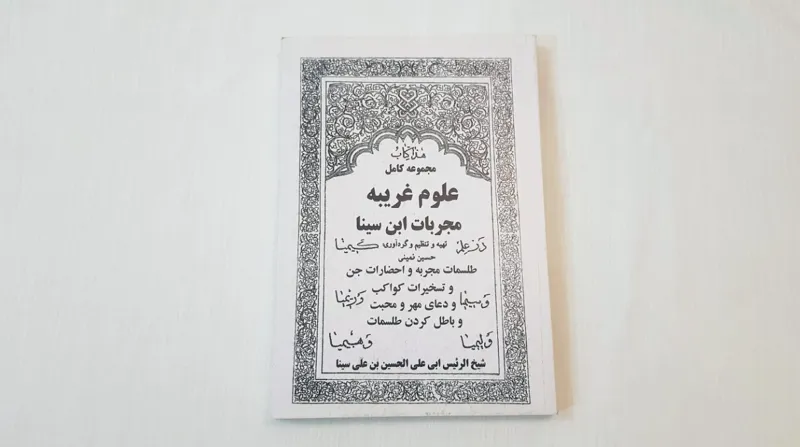 هذا کتاب
مجموعه کامل
علوم غریبه
مجربات ابن سینا
در علم تهیه و تنظیم و گردآوری کیمیا
حسین نعیمی
طلسمات مجربه و احضارات جن
و تسخیرات کواکب
و سیمیا و دعای مهر و محبت و ریمیا
و باطل کردن طلسمات
و لیمیا و هیمیا
شیخ الرئیس ابی علی الحسین بن علی سینا